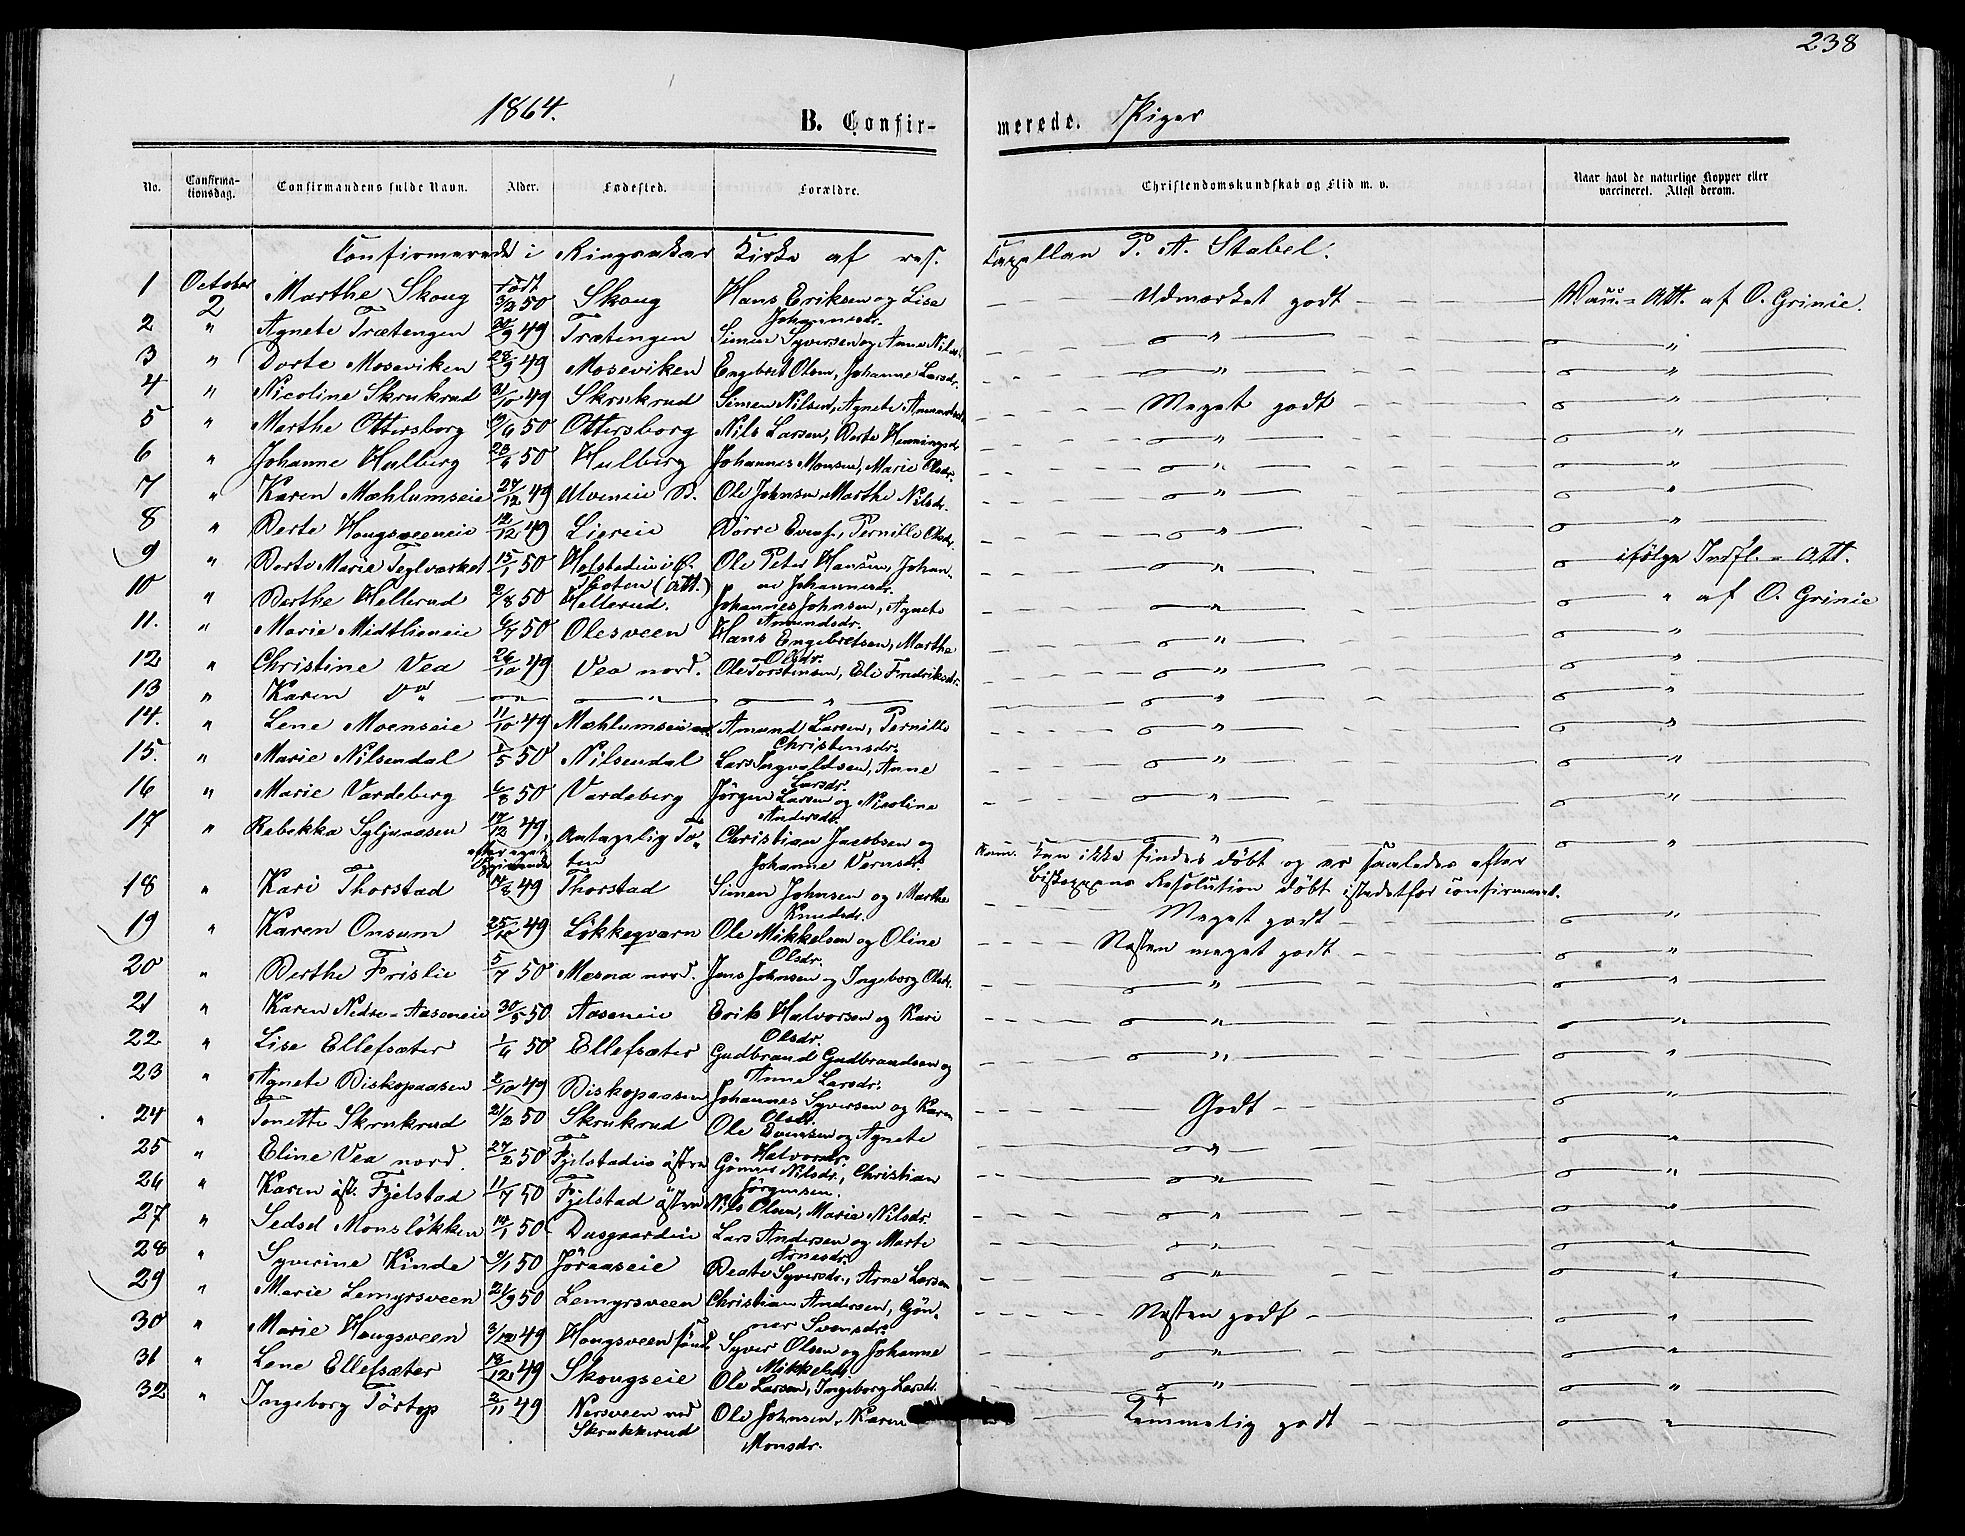 238
1864.
B. Confir-
merede. Piger
No.
Confirma-
tionsdag.
Confirmandens fulde Navn.
Alder.
Fødested.
Forældre.
Christendomskundskab og Flid m. v.
Naar havt de naturlige Kopper eller
vaccineret. Attest derom.
Confirmerede i Ringsaker Kirke af res. Capellan P. A. Stabel.
1 October 2 Marthe Skoug født 3/2 50 Skoug Hans Eriksen og Lise Johannesdr. Udmærket godt Vacc. Att. af O. Grinie.
2 " Agnete Trætengen 20/9 49 Trætengen Simen Syversen og Anne Nilsd. " "
3 " Dorte Moseviken 28/9 49 Moseviken Engebret Olsen, Johanne Larsdr. " "
4 " Nicoline Skrukrud 3/10 49 Skrukrud Simen Nilsen, Agnete Amundsdr. Meget godt "
5 " Marthe Ottersborg 50 Ottersborg Nils Larsen, Berte Henningsdr. " "
6 " Johanne Hulberg 50 Hulberg Johannes Monsen, Marie Olsdr. " "
7 " Karen Mæhlumseie 27/12 49 Alveneie Ole Johnsen, Marthe Nilsdr. " "
8 " Berte Hougsveeneie 12/12 49 Liereie Börre Evens., Pernille Olsdr. " "
9 " Berte Marie Teglværket 15/1 50 Holstadeie i Ø. Toten (Att.) Ole Peter Hansen, Johanne Johannesdr. " ifølge Indfl. - Att.
10 " Berthe Hellerud 2/8 50 Hellerud. Johannes Johnsen, Agnete Amundsdr. " " af O. Grinie
11. " Marie Midtlieneie 6/7 50 Olesveen Hans Engebretsen, Marthe Olsdr. " "
12 " Christine Vea 26/10 49 Vea nord. Ole Torstensen, Eli Fredriksdr. " "
13 " Karen Vea " " " " "
14. " Lene Moenseie 11/10 49 Mæhlumseie Amund Larsen, Pernille Christensdr. " "
15. " Marie Nilsendal 1/5 50 Nilsendal Lars Ingvaldsen, Anne Larsdr. " "
16 " Marie Vardeberg 6/8 50 Vardeberg Jörgen Larsen og Nicoline Andersdr. " "
17 " Rebekka Syljuaasen 17/12 49, efter eget Sigende Antagelig Toten Christian Jacobsen og Johanne Bernsdr. " "
Kan ikke findes døbt og er saaledes efter
Biskoppens Resolution døbt istedetfor confirmeret.
18 " Kari Thorstad 14/8 49 Thorstad Simen Johnsen og Marthe Knudsdr. Meget godt "
19 " Karen Onsum 25/12 49 Lökkeqvarn Ole Mikkelsen og Oline Olsdr. Næsten meget godt "
20 " Berthe Frislie 5/7 50 Mæsna nord. Jens Johnsen og Ingeborg Olsdr. " "
21 " Karen Nedre-Aaseneie 30/5 50 Aaseneie Erik Halvorsen og Kari Olsdr. " "
22 " Lise Ellefsæter 50 Ellefsæter Gudbrand Gudbrandsen og Anne Larsdr. " "
23 " Agnete Biskopaasen 2/10 49 Biskopaasen Johannes Syversen og Karen Olsdr. Godt "
24 " Tonette Skrukrud 21/2 50 Skrukrud Ole Evensen og Agnete Halvorsdr. " "
25 " Eline Vea nord. 27/2 50 Fjelstadeie østre Gönner Nilsdr., Christian Jörgensen. " "
26 " Karen øst. Fjelstad 11/7 50 Fjelstad østre Nils Olsen, Marie Nilsdr. " "
27 " Sedsel Monslökken 14/1 50 Dusgaardeie Lars Andersen og Marte Arnesdr. " "
28 " Syverine Kinde 9/1 50 Jöraaseie Beate Syversdr., Arne Larsen " "
29 " Marie Lemyrsveen 21/9 50 Lemyrsveen Christian Andersen, Gönner Svensdr. Næsten godt "
30 " Marie Hougsveen 3/12 49 Hougsveen søndr. Syver Olsen og Johanne Mikkelsdr. " "
31 " Lene Ellefsæter 13/12 49 Skougseie Ole Larsen, Ingeborg Larsdr. " "
32 " Ingeborg Törtop 2/11 49 Nersveen ved Skrukkerud Ole Johnsen, Karen Monsdr. Temmelig godt "